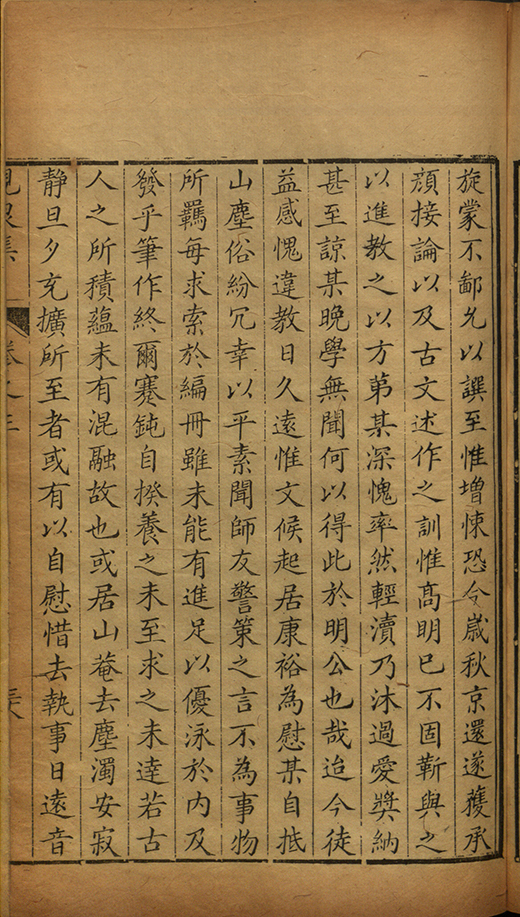 旋蒙不鄙允以譔至惟増悚恐今嵗秋京還遂獲承
顔接論以及古文述作之訓惟髙明巳不固靳與之
以進教之以方第某深愧率然輕瀆乃沐過愛奬納
甚至諒某晚學無聞何以得此於明公也哉迨今徒
益感愧違教日久遠惟文候起居康裕為慰某自抵
山塵俗紛冗幸以平素聞師友警策之言不為事物
所羈每求索於編冊雖未能有進足以優泳於内及
發乎筆作終爾蹇鈍自揆養之未至求之未達若古
人之所積蘊未有混融故也或居山菴去塵濁安寂
静旦夕充擴所至者或有以自慰惜去執事日遠音
峴泉集
卷之三